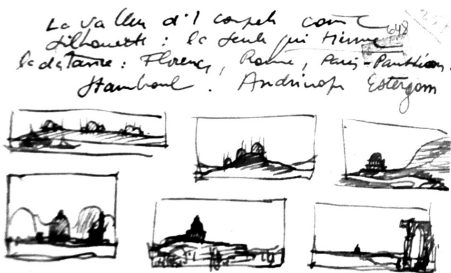 La valeur d'1 coupole comme
silhouette : la seule qui tienne
648
la distance : Florence, Rome, Paris-Panthéon.
Stamboul. Andrinople Estergom